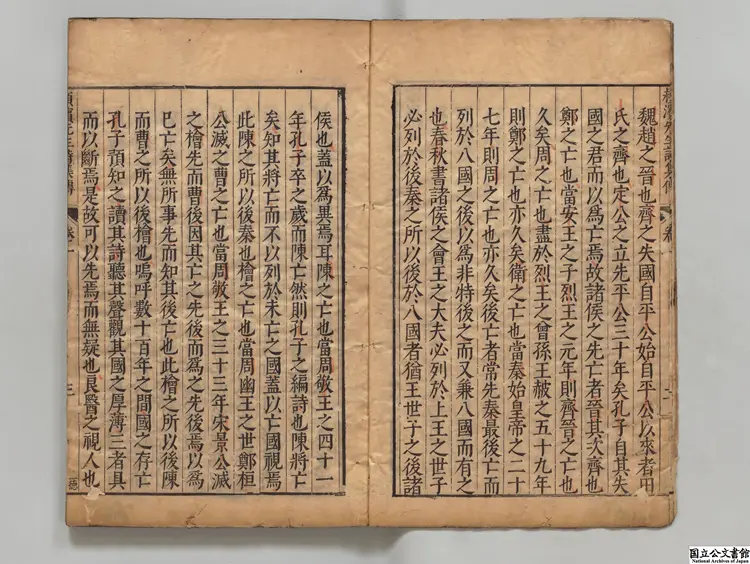 魏趙之晉也齊之失國自平公始自平公以來者田
氏之齊也定公之立先平公三十年矣孔子自其失
國之君而以爲亡焉故諸侯之先亡者晉其次齊也
鄭之亡也當安王之子烈王之元年則齊晉之亡也
久矣周之亡也盡於烈王之曾孫王赧之五十九年
則鄭之亡也亦久矣衛之亡也當秦始皇帝之二十
七年則周之亡也亦久矣後亡者當先秦最後亡而
列於八國之後以爲非特後之而又兼八國而有之
也春秋書諸侯之會王之大夫必列於上王之世子
必列於後秦之所以後於八國者猶王世子之後諸
侯也蓋以爲異焉耳陳之亡也當周敬王之四十一
年孔子卒之歲而陳亡然則孔子之編詩也陳將亡
矣知其將亡而不以列於未亡之國蓋以亡國視焉
此陳之所以後秦也檜之亡也當周幽王之世鄭桓
公滅之曹之亡也當周敬王之三十三年宋景公滅
之檜先而曹後因其亡之先後而爲之先後焉以爲
已亡矣無所事先而知其後亡也此檜之所以後陳
而曹之所以後檜也嗚呼數十百年之間國之存亡
孔子預知之讀其詩聽其聲觀其國之厚薄三者具
而以斷焉是故可以先焉而無疑也良醫之視人也
国立公文書館
National Archives of Japan